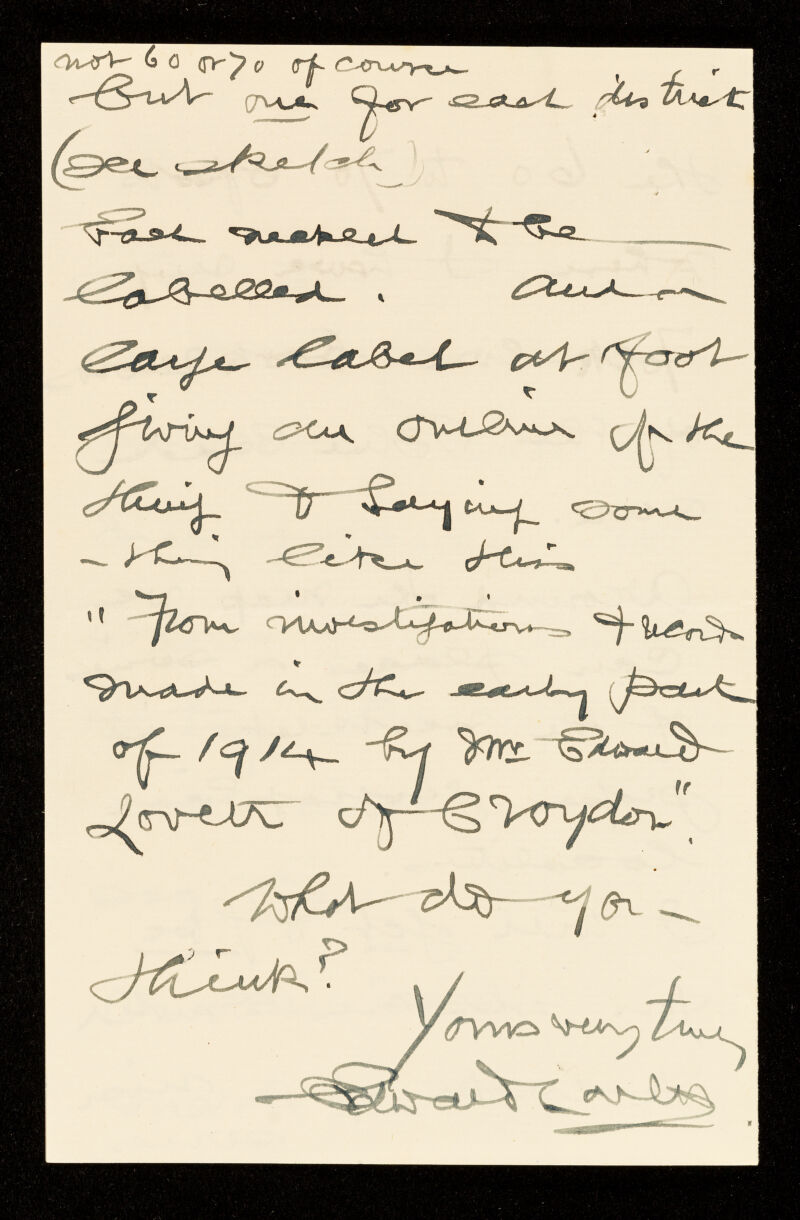 not 60 or 70 of course
but one for each district
(see sketch)
Each necklet to be
labelled. And a
large label at foot
giving an outline of the
thing & saying some
-thing like this
"From investigations & records
made in the early part
of 1914 by Mr Edward
Lovett of Croydon".
What do you -
think?
Yours very truly
Edward Lovett